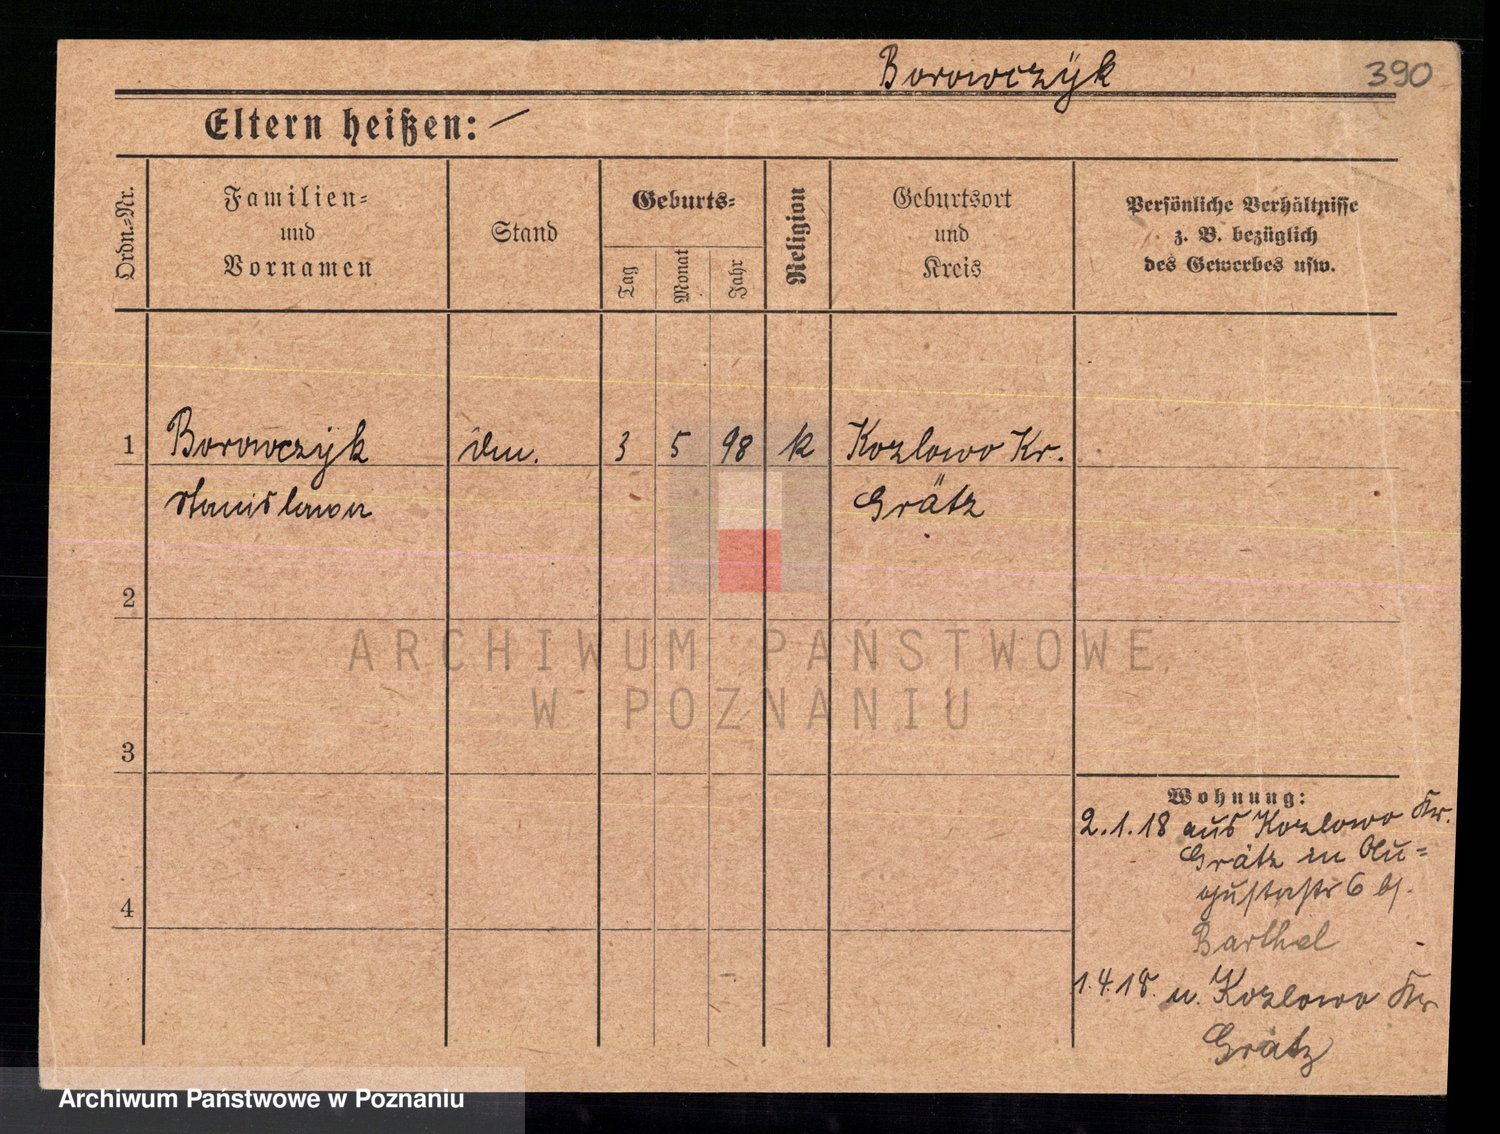 Borowczÿk
390
Eltern heißen: —
Ordn.-Nr.
Familien-
und
Vornamen
Stand
Geburts-
Tag
Monat
Jahr
Religion
Geburtsort
und
Kreis
Persönliche Verhältnisse
z. B. bezüglich
des Gewerbes usw.
1 Borowczyk 3 5 98 k Kozlowo Kr.
Stanislawa Grätz
2
3
4
Wohnung:
2.1.18 aus Kozlowo Kr.
Grätz in Au-
gustastr 6 bj.
Barthel
1.4.18. n. Kozlowo Kr
Grätz
ARCHIWUM PAŃSTWOWE
W POZNANIU
Archiwum Państwowe w Poznaniu